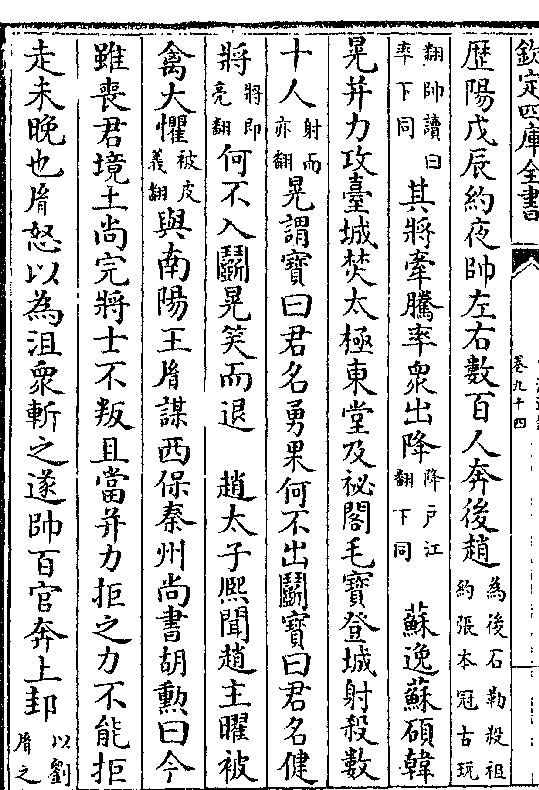 欽定四庫全書
卷九十四
歴陽戊辰約夜帥左右數百人奔後趙為後石勒殺祖約張本冠古玩
翻帥讀曰率下同其將牽騰率衆出降降戸江翻下同 蘇逸蘇碩韓
晃幷力攻臺城焚太極東堂及祕閣毛寶登城射殺數
十人射而亦翻晃謂寶曰君名勇果何不出鬭寶曰君名健
將將即亮翻何不入鬭晃笑而退 趙太子熙聞趙主曜被
禽大懼被皮義翻與南陽王胤謀西保秦州尚書胡勲曰今
雖喪君境土尚完將士不叛且當幷力拒之力不能拒
走未晚也胤怒以為沮衆斬之遂帥百官奔上邽以劉胤之